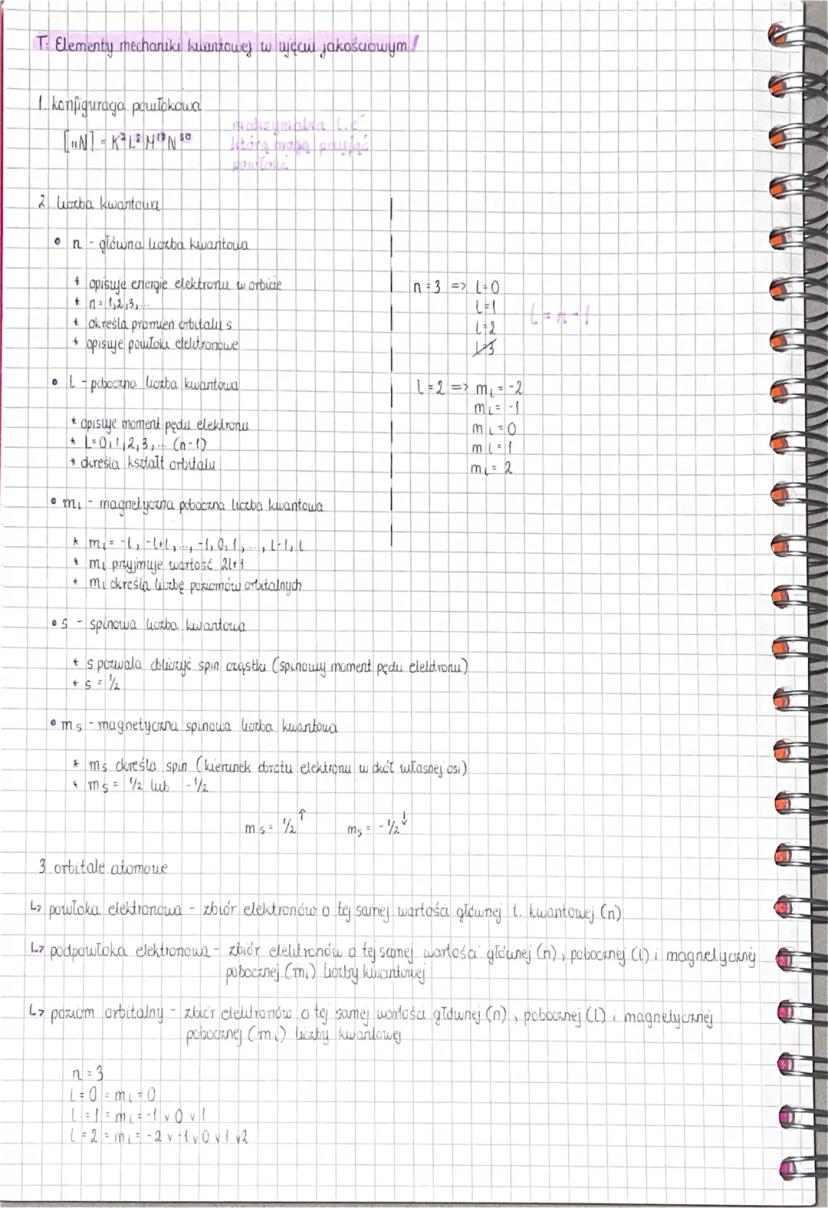 T: Elementy mechaniki kwantowej w ujęciu jakościowym!
1. konfiguracja powłokowa
maksymalna l. e⁻
którą mogą przyjąć
powłoki
N] = K² L⁸ M¹⁸ N
2. liczba kwantowa
• n - główna liczba kwantowa
* opisuje energię elektronu w orbicie
* n = 1,2,3,...
* określa promień orbitalu s
* opisuje powłoki elektronowe
n = 3 => l=0
l=1
l=2
l=3
l = n - 1
• l - poboczna liczba kwantowa
* opisuje moment pędu elektronu
* l=0,1,2,3,... (n-1)
* określa kształt orbitalu
l = 2 => ml = -2
ml = -1
ml = 0
ml = 1
ml = 2
• ml - magnetyczna poboczna liczba kwantowa
* ml = -l, -l+l, ..., -1, 0, 1, ..., l-1, l
* ml przyjmuje wartość 2l+1
* ml określa liczbę poziomów orbitalnych
• s - spinowa liczba kwantowa
* s pozwala obliczyć spin cząstki (spinowy moment pędu elektronu)
* s = 1/2
• ms - magnetyczna spinowa liczba kwantowa
* ms określa spin (kierunek obrotu elektronu w okół własnej osi)
* ms = 1/2 lub -1/2
ms = 1/2 ↑ ms = -1/2 ↓
3. orbitale atomowe
↳ powłoka elektronowa - zbiór elektronów o tej samej wartości głównej l. kwantowej (n)
↳ podpowłoka elektronowa - zbiór elektronów o tej samej wartości głównej (n), pobocznej (l) i magnetycznej
pobocznej (ml) liczby kwantowej
↳ poziom orbitalny - zbiór elektronów o tej samej wartości głównej (n), pobocznej (l) i magnetycznej
pobocznej (ml) liczby kwantowej
n = 3
l = 0 = ml = 0
l = 1 = ml = -1 v 0 v 1
l = 2 = ml = -2 v -1 v 0 v 1 v 2